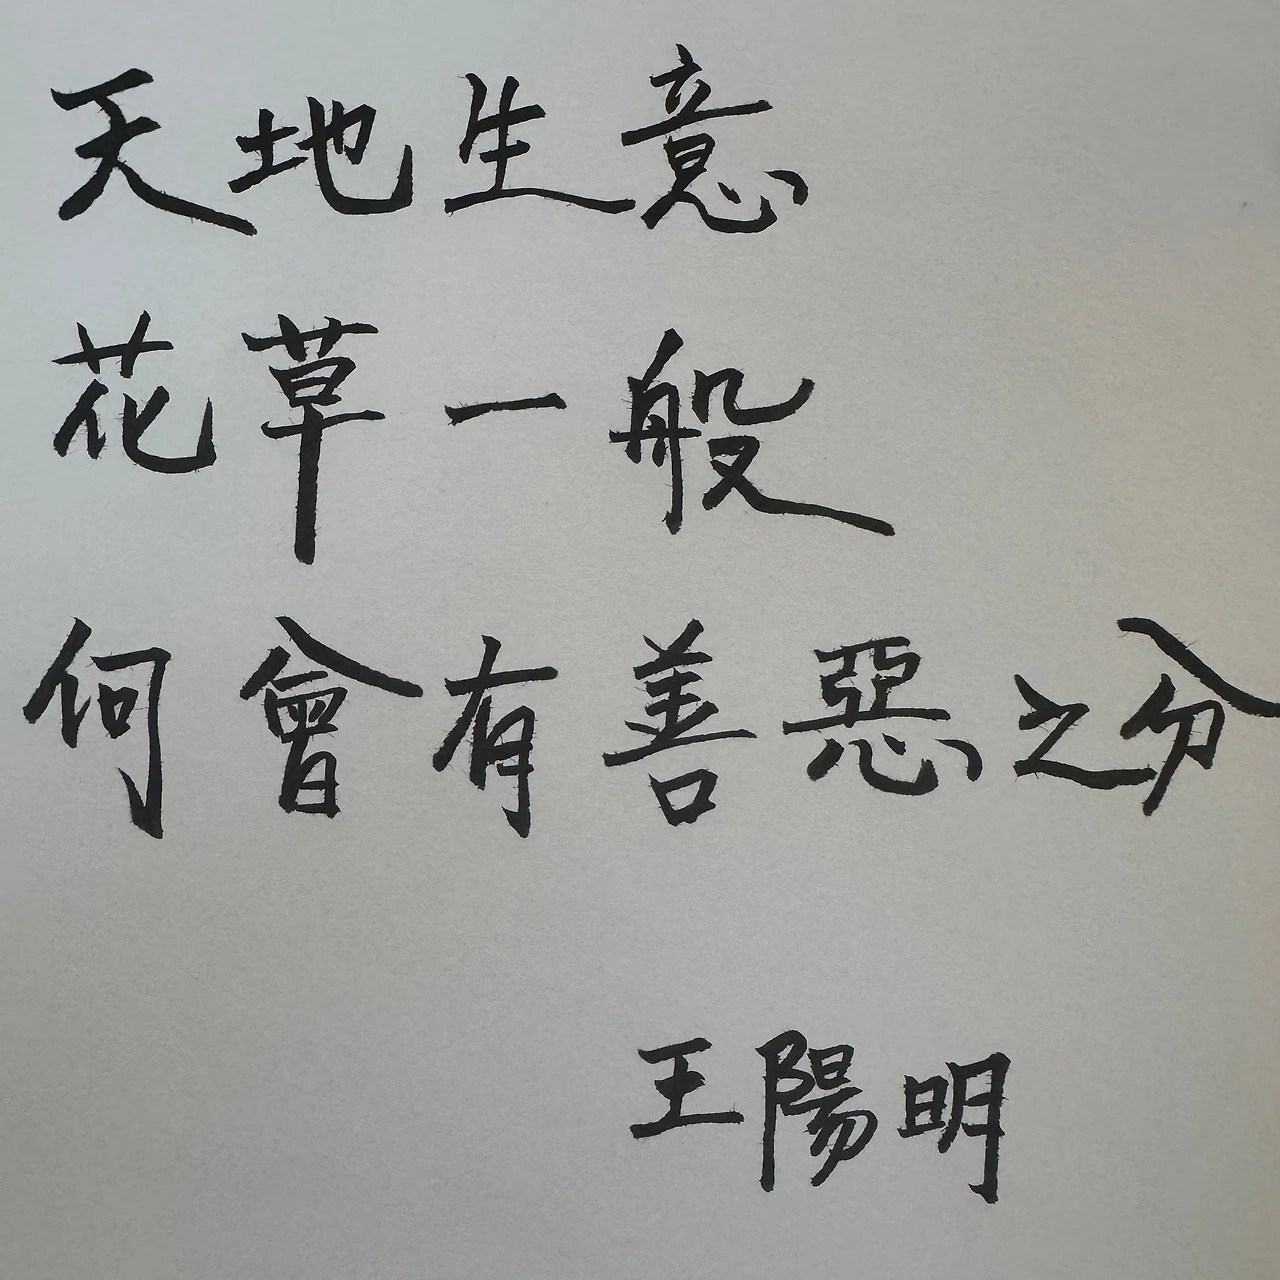 天地生意
花草一般
何會有善惡之分
王陽明